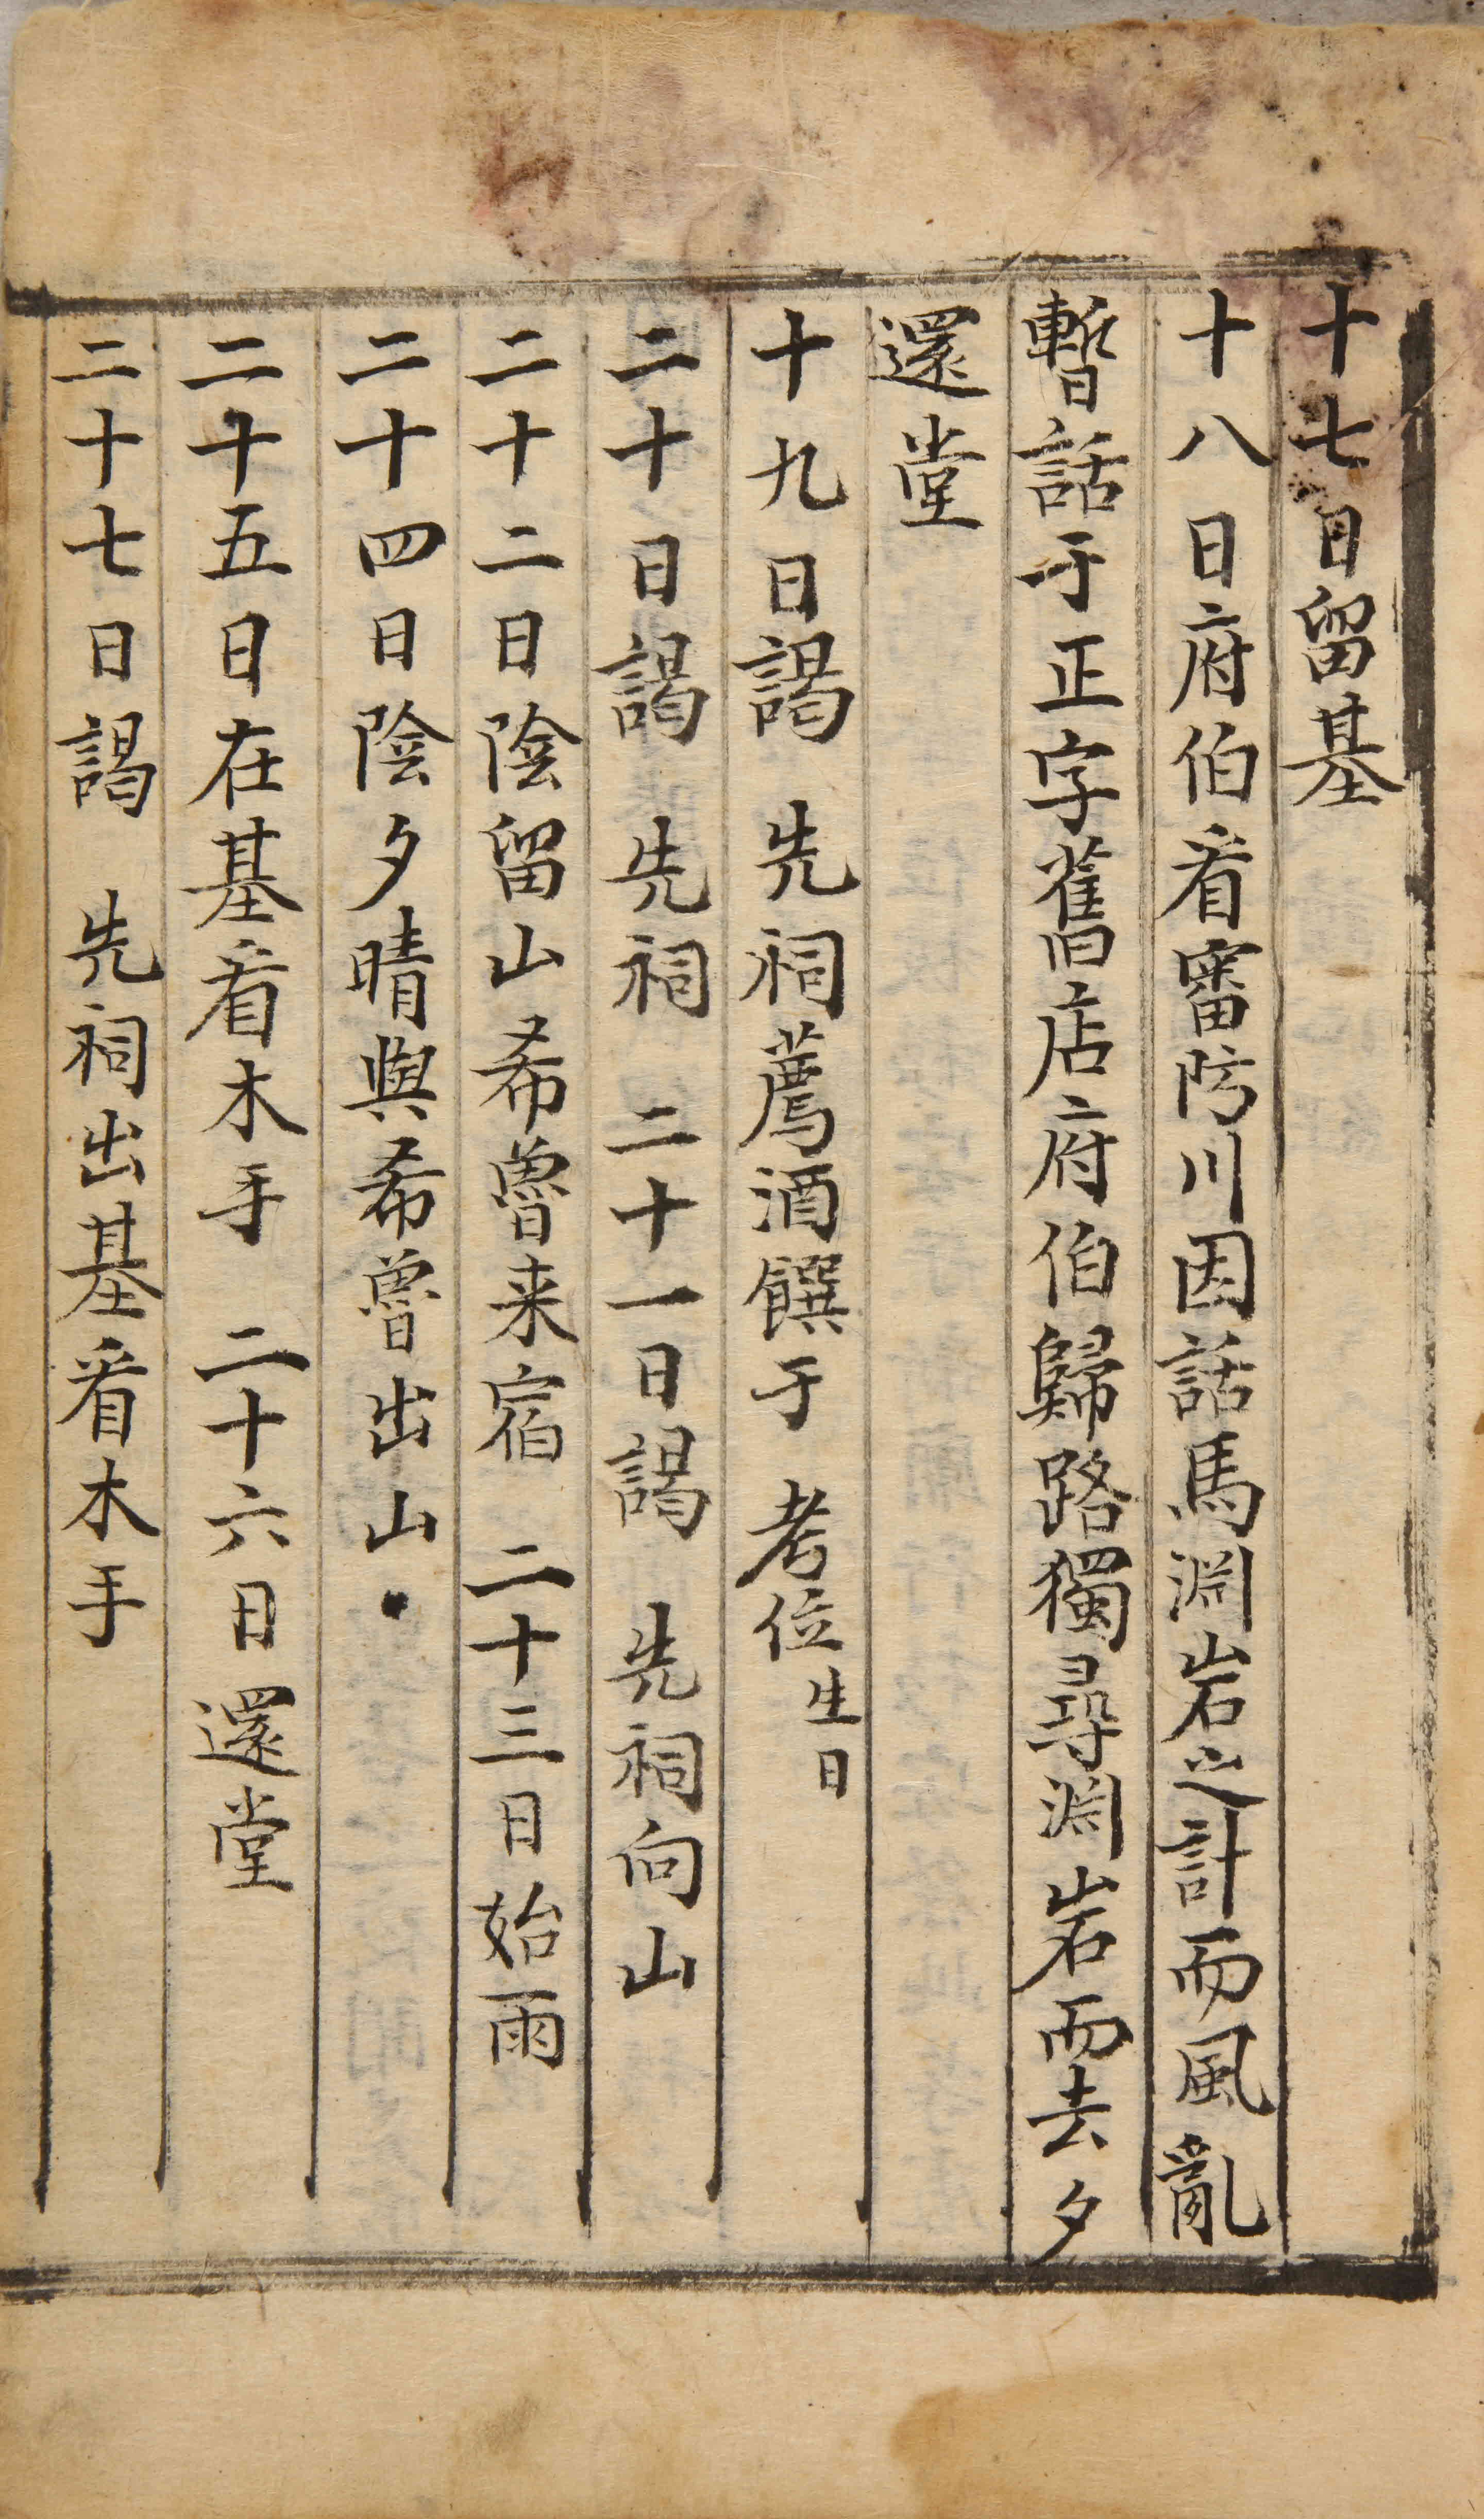 十七日留基
十八日府伯看審防川因話馬淵岩之計而風亂
暫話于正字舊店府伯歸路獨尋淵岩而去夕
還堂
十九日謁 先祠薦酒饌于 考位生日
二十日謁 先祠 二十一日謁 先祠向山
二十二日陰留山希魯来宿 二十三日始雨
二十四日陰夕晴與希魯出山
二十五日在基看木手 二十六日還堂
二十七日謁 先祠出基看木手